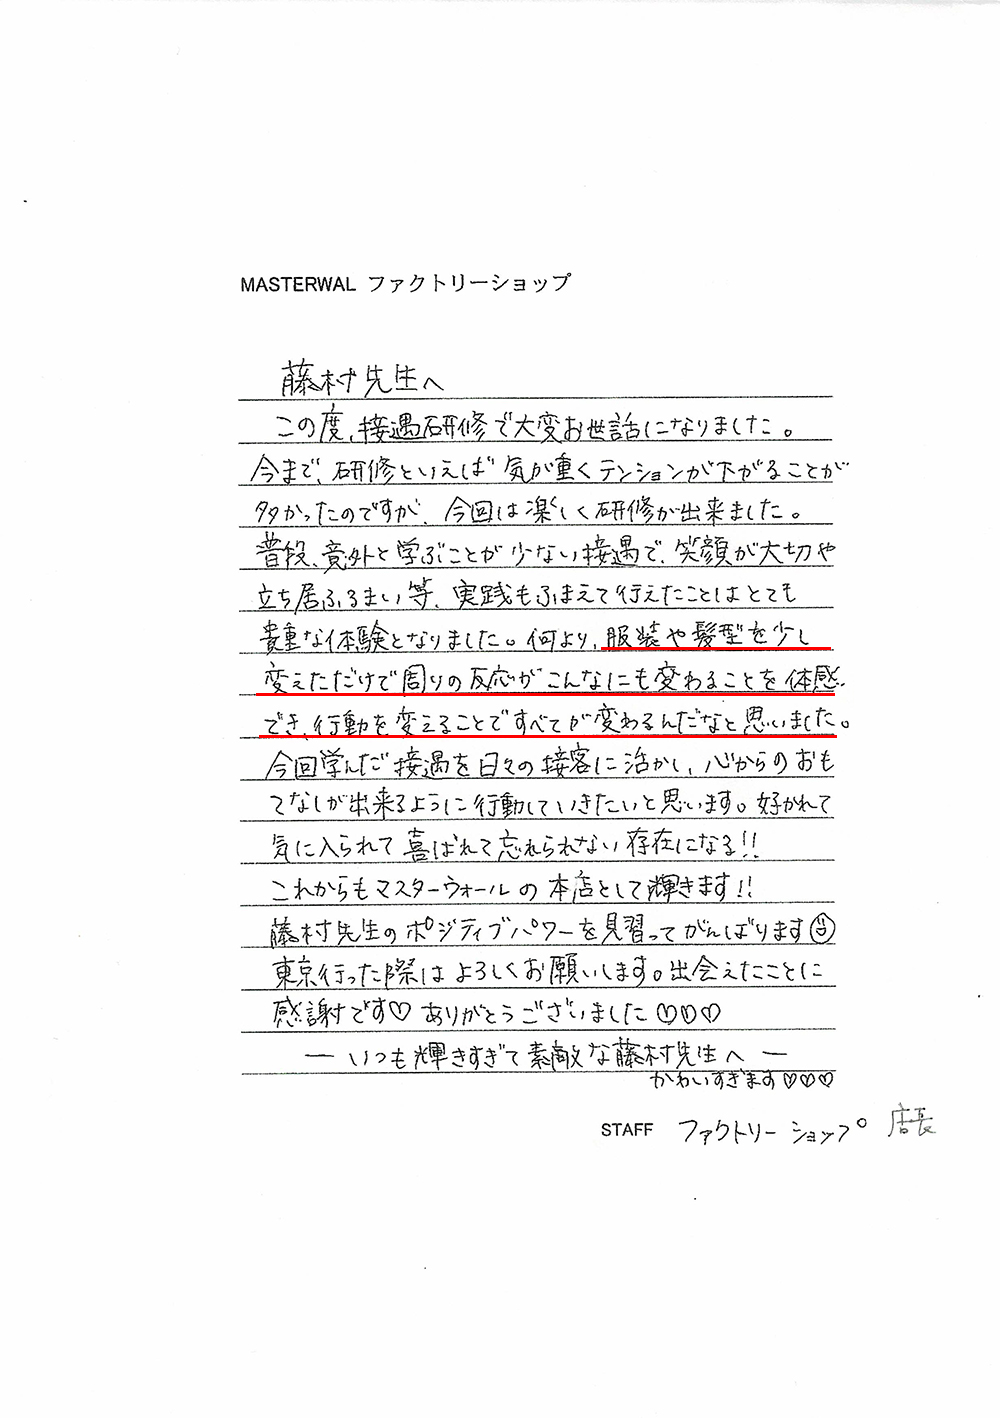 MASTERWAL ファクトリーショップ
藤村先生へ
この度、接遇研修で大変お世話になりました。
今まで、研修といえば気が重くテンションが下がることが
多かったのですが、今回は楽しく研修が出来ました。
普段、意外と学ぶことが少ない接遇で、笑顔が大切や
立ち居ふるまい等、実践もふまえて行えたことはとても
貴重な体験となりました。何より、服装や髪型を少し
変えただけで周りの反応がこんなにも変わることを体感
でき、行動を変えることですべてが変わるんだなと思いました。
今回学んだ接遇を日々の接客に活かし、心からのおも
てなしが出来るように行動していきたいと思います。好かれて
気に入られて喜ばれて忘れられない存在になる!!
これからもマスターウォールの本店として輝きます!!
藤村先生のポジティブパワーを見習ってがんばります☺
東京行った際はよろしくお願いします。出会えたことに
感謝です♡ありがとうございました♡♡♡
ー いつも輝きすぎて素敵な藤村先生へ ー
かわいすぎます♡♡♡
STAFF ファクトリーショップ 店長